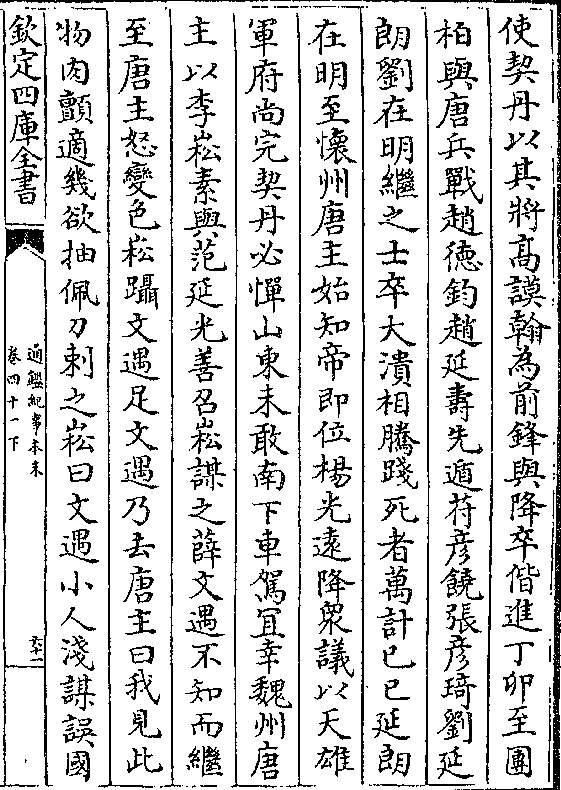 使契丹以其將髙謨翰為前鋒與降卒偕進丁卯至團
柏與唐兵戰趙德鈞趙延壽先遁苻彦饒張彦琦劉延
朗劉在明繼之士卒大潰相騰踐死者萬計已已延朗
在明至懷州唐主始知帝即位楊光遠降衆議以天雄
軍府尚完契丹必憚山東未敢南下車駕宜幸魏州唐
主以李崧素與范延光善召崧謀之薛文遇不知而繼
至唐主怒變色崧躡文遇足文遇乃去唐主曰我見此
物肉顫適幾欲抽佩刀刺之崧曰文遇小人淺謀誤國
欽定四庫全書
通鑑紀事本末
卷四十一下